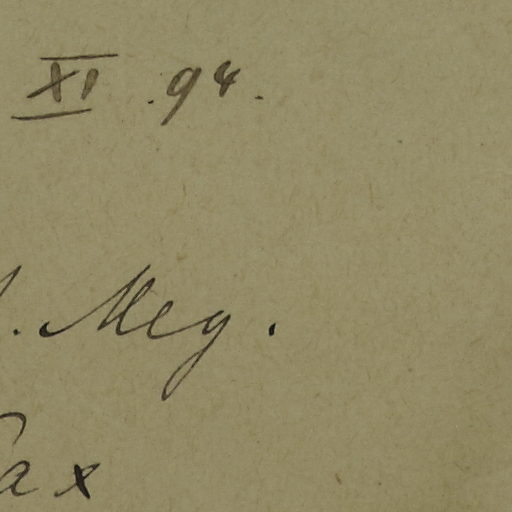 XI .94.
. Meg.
ax